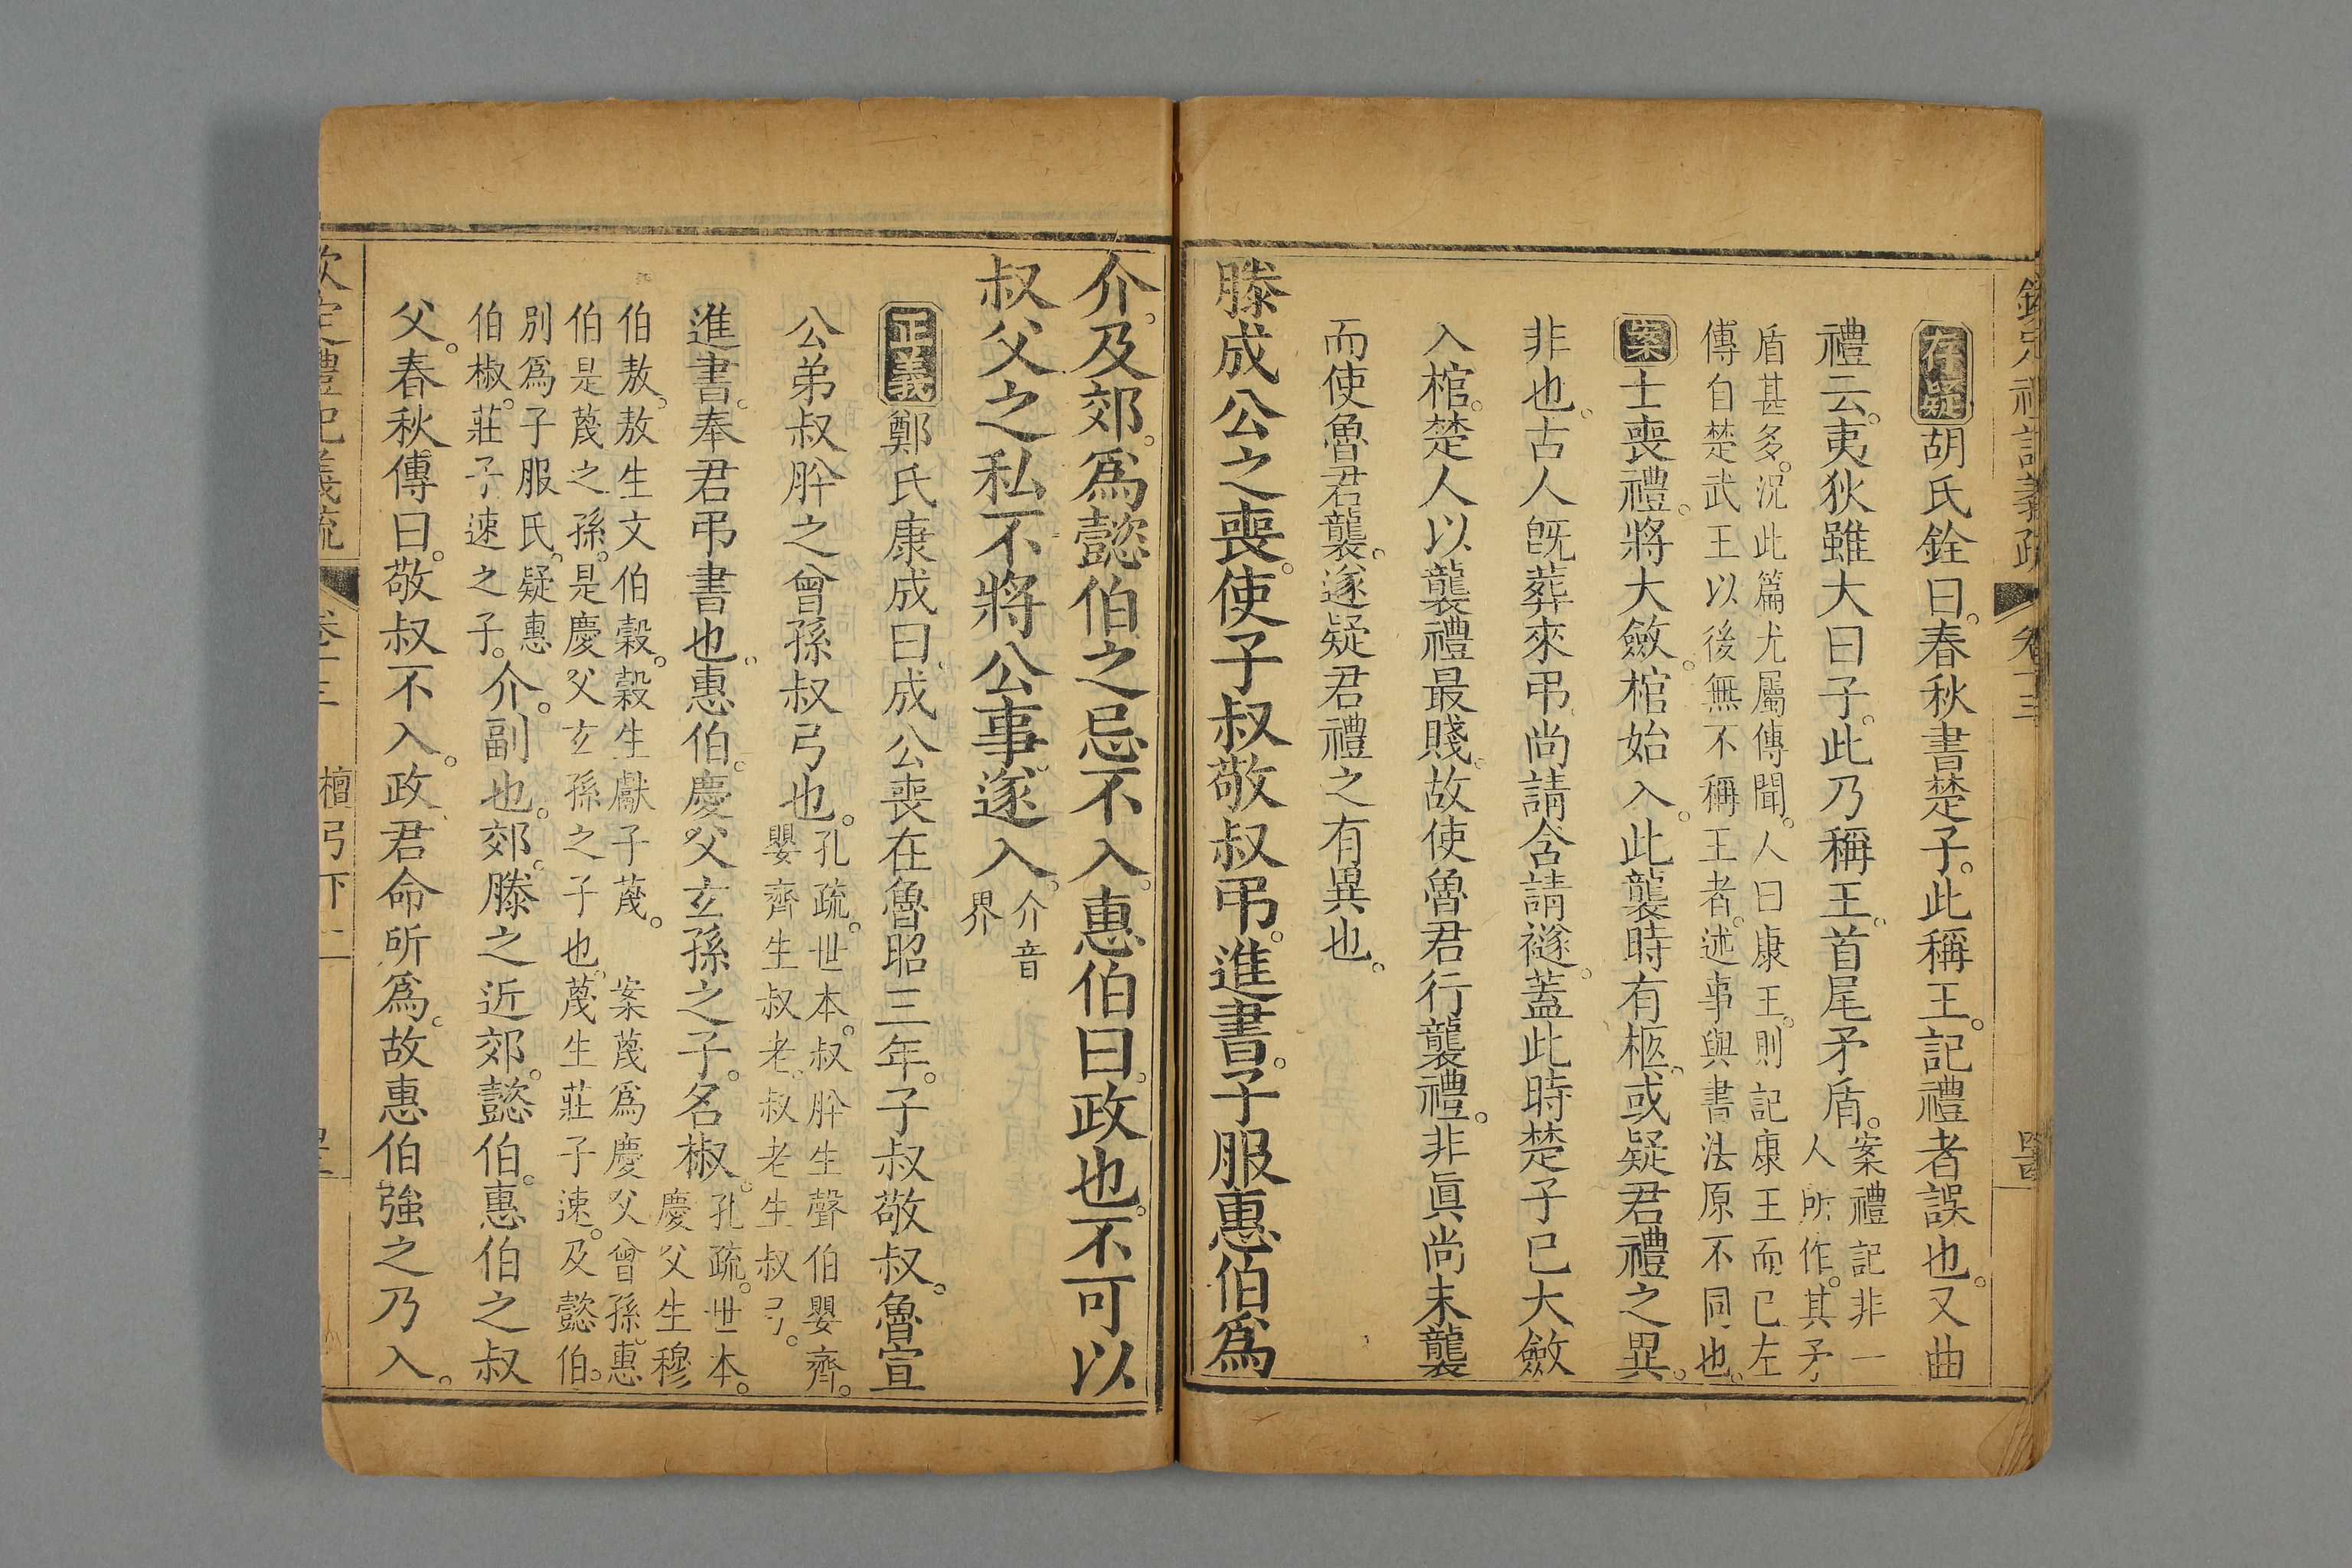 存疑胡氏銓曰。春秋書楚子。此稱王。記禮者誤也。又曲
禮云。夷狄雖大曰子。此乃稱王。首尾矛盾。案禮記非一
人所作。其矛
盾甚多。況此篇尤屬傳聞。人曰康王。則記康王而已。左
傳自楚武王以後無不稱王者。述事與書法原不同也。
案士喪禮。將大斂。棺始入。此襲時有柩。或疑君禮之異。
非也。古人旣葬來弔。尚請含請襚。蓋此時楚子已大斂
入棺。楚人以襲禮最賤。故使魯君行襲禮。非眞尚未襲
而使魯君襲。遂疑君禮之有異也。
滕成公之喪。使子叔敬叔弔。進書。子服惠伯爲
介。及郊。爲懿伯之忌不入。惠伯曰。政也。不可以
叔父之私不將公事。遂入。介音
界
正義鄭氏康成曰。成公喪在魯昭三年。子叔敬叔。魯宣
公弟叔肸之曾孫叔弓也。孔疏。世本。叔肸生聲伯嬰齊。
嬰齊生叔老。叔老生叔弓。
進書。奉君弔書也。惠伯。慶父玄孫之子。名椒。孔疏。世本。
慶父生穆
伯敖。敖生文伯穀。穀生獻子蔑。 案蔑爲慶父曾孫。惠
伯是蔑之孫。是慶父玄孫之子也。蔑生莊子速。及懿伯。
別爲子服氏。疑惠
伯椒。莊子速之子。介。副也。郊。滕之近郊。懿伯。惠伯之叔
父。春秋傳曰。敬叔不入。政君命所爲。故惠伯強之乃入。
欽定禮記義疏 卷十三 檀弓下二